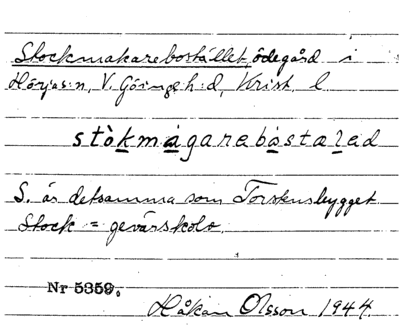 Stockmakarebostället, ödegård i
Hörjas:n, V. Göinge h:d, Krist. l
stòkmágarebåstaled
S. är detsamma som Torstensbygget.
Stock = gevärskolv.
Nr 5359.
Håkan Olsson 1944.